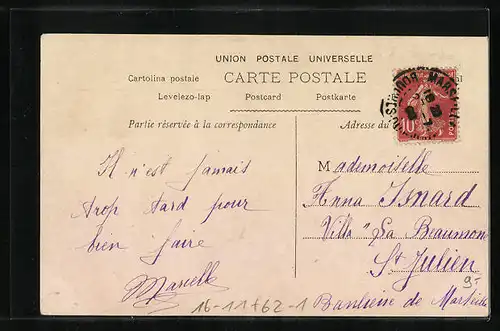 UNION POSTALE UNIVERSELLE
Cartolina postale CARTE POSTALE
Levelezo-lap Postcard Postkarte
Partie réservée à la correspondance
Adresse du
Il n'est jamais
trop tard pour
bien faire
Marcelle
Mademoiselle
Anna Isnard
Villa "La Beaumone
St Julien
Banlieue de Marseille
10
POSTES
9-
16-11462-1